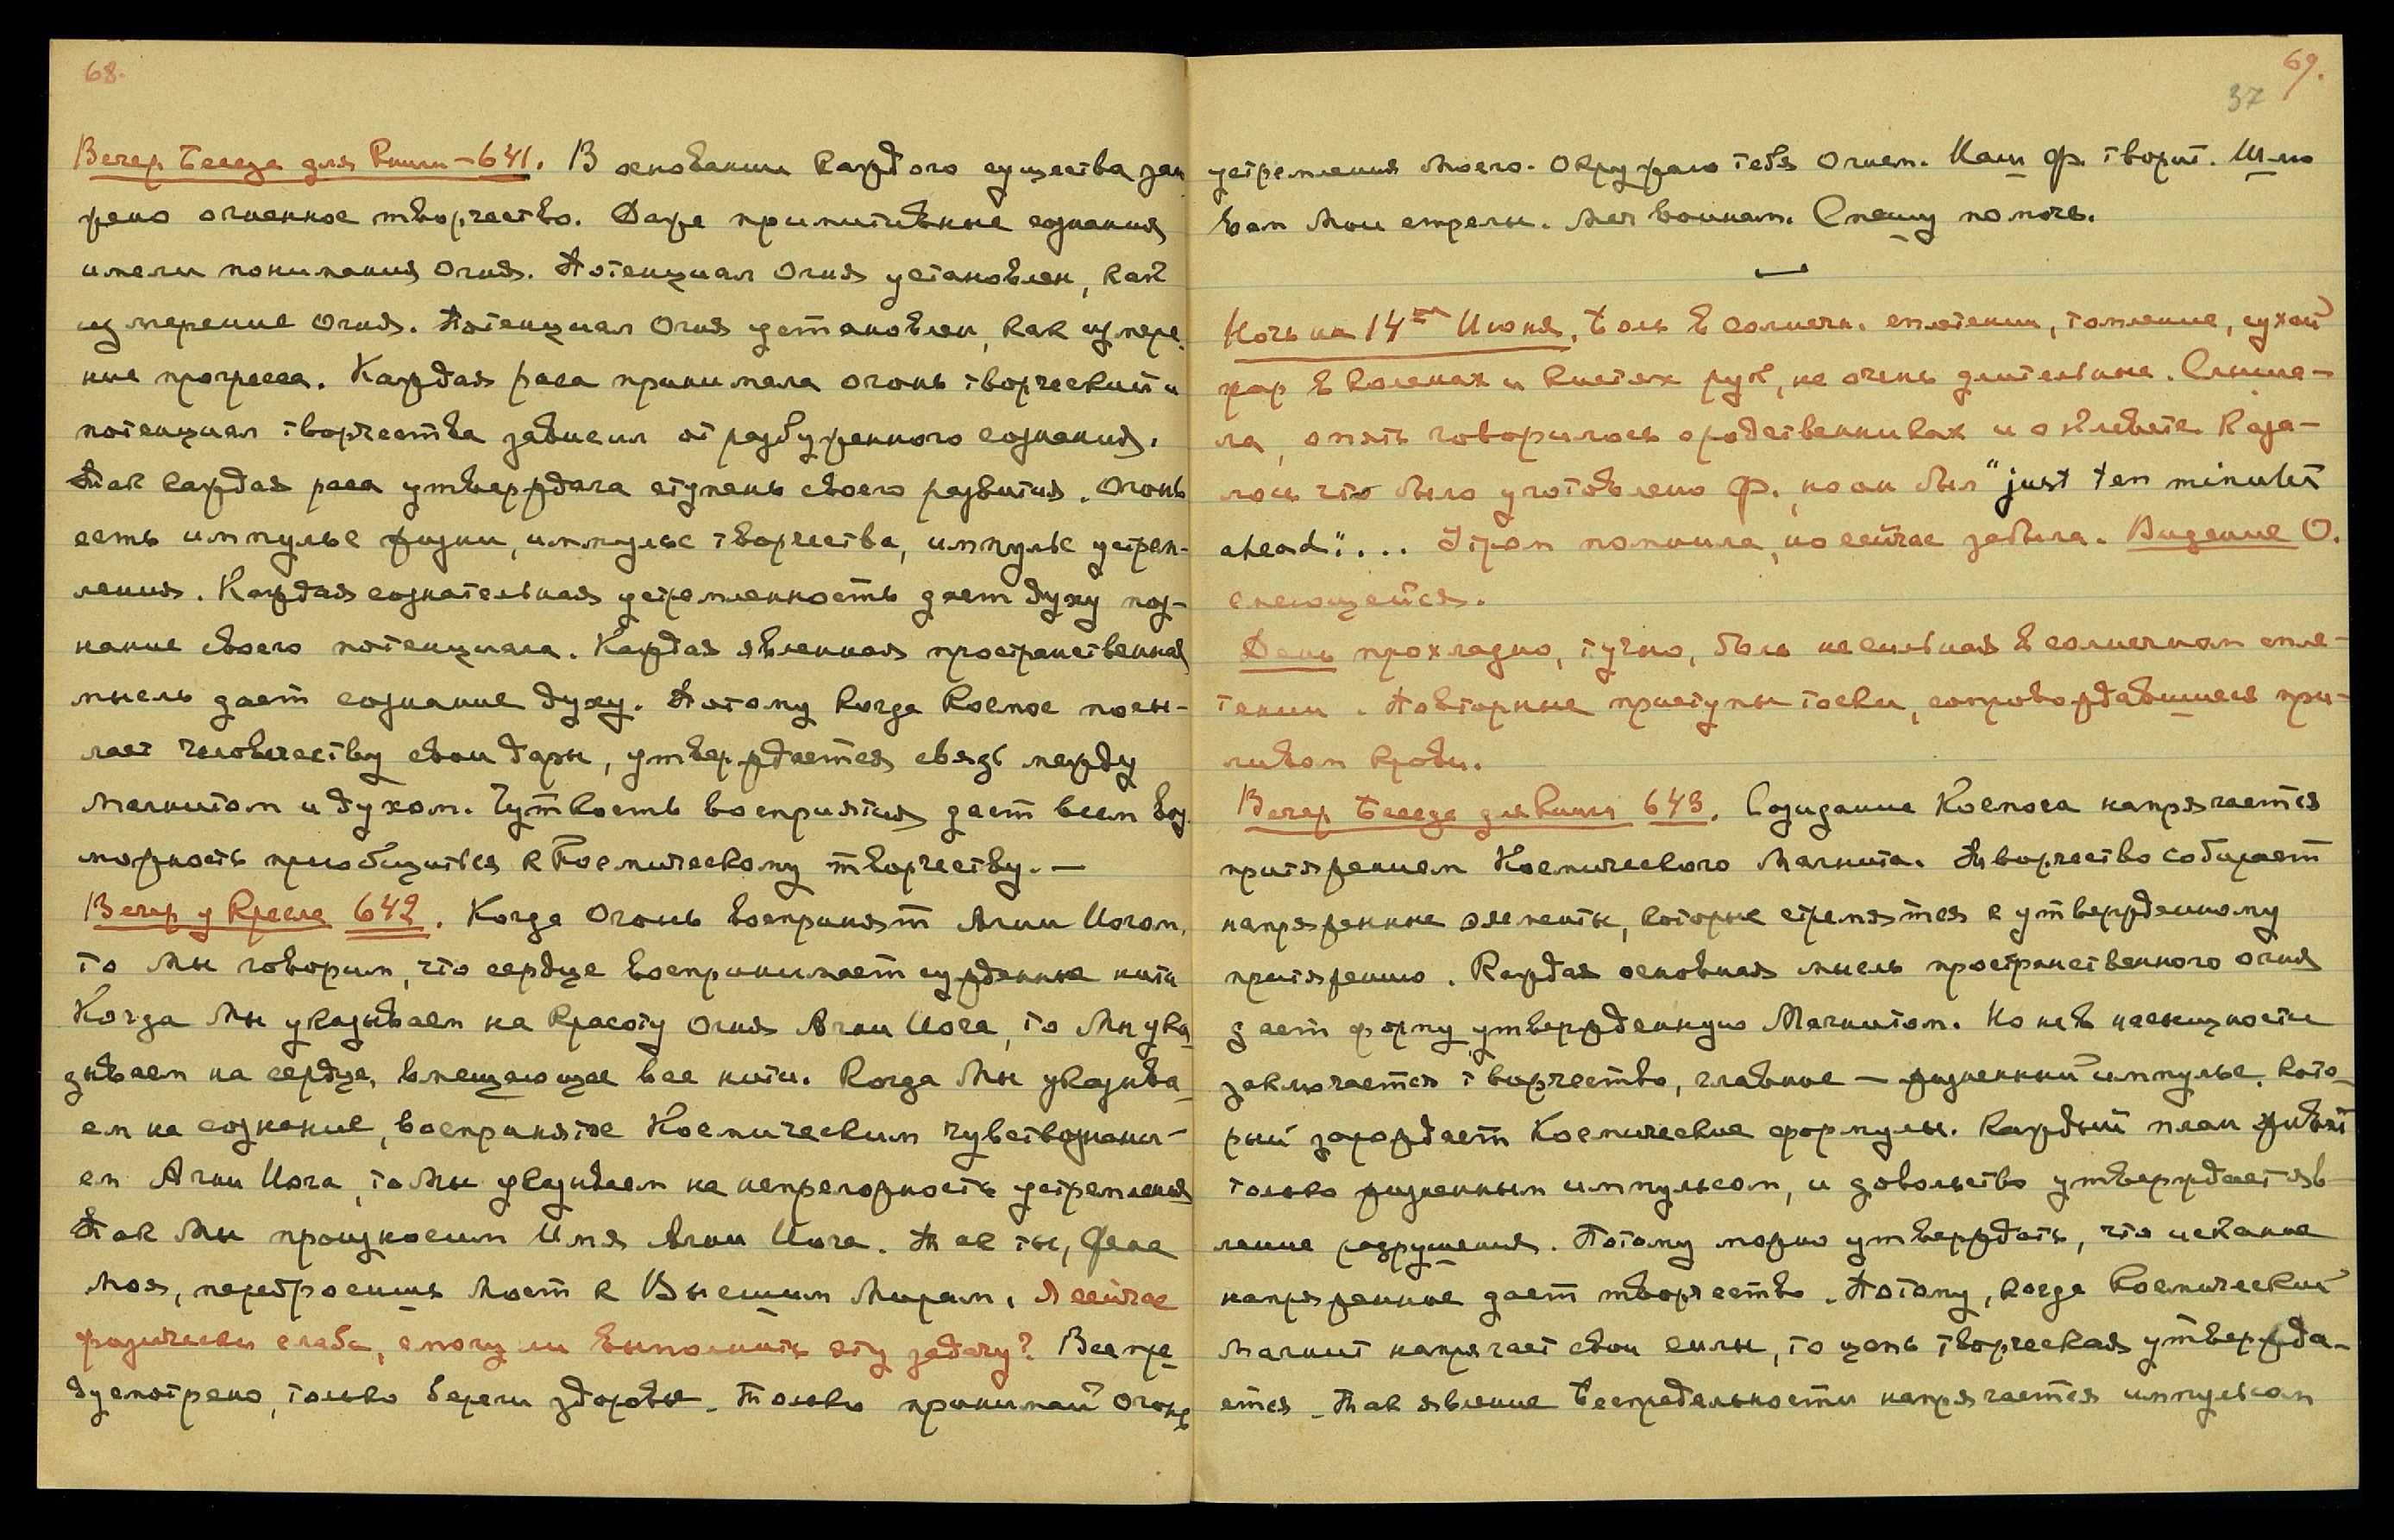 68.
Вечер Беседа для Книги – 641. В основании каждого существа зало
жено огненное творчество. Даже примитивные сознания
имели понимания Огня. Потенциал Огня установлен, как
измерение Огня. Потенциал Огня установлен, как измере
ние прогресса. Каждая раса принимала огонь творческий и
потенциал творчества зависил от разбуженного сознания.
Так каждая раса утверждала ступень своего развития. Огонь
есть импульс жизни, импульс творчества, импульс устрем-
ления. Каждая сознательная устремленность дает духу поз-
нание своего потенциала. Каждая явленная пространственная
мысль дает сознание духу. Потому когда Космос посы-
лает человечеству свои дары, утверждается связь между
Магнитом и духом. Чуткость восприятия дает всем воз
можность приобщиться к Космическому творчеству. —
Вечер у Кресла 642. Когда Огонь воспринят Агни Иогом,
то Мы говорим, что сердце воспринимает сужденные нити
Когда Мы указываем на красоту огня Агни Иога, то Мы ука
зываем на сердце, вмещающее все нити. Когда Мы указыва
ем на сознание, восприятое Космическим чувствознани-
ем Агни Иога, то Мы указываем на непреложность устремления
Так Мы произносим Имя Агни Иога. Так ты, Фева
Моя, перебросишь Мост к Высшим Мирам. Я сейчас
физически слаба, смогу ли выполнить эту задачу? Все пре
дусмотрено, только береги здоровье. Только принимай Огонь
69.
37
устремления Моего. Окружаю тебя Огнем. Наш Ф. творит. Шлю
вам Мои стрелы. Меч воинам. Спешу помочь.
Ночь на 14ое Июня, боль в солнечн. сплетении, томление, сухой
жар в коленах и кистях рук, не очень длительные. Слыша-
ла, опять говорилось о родственниках и о клевете. Каза-
лось что было уготовлено Ф., но он был "just ten minutes
ahead"... Утром помнила, но сейчас забыла. Видение О.
смеющейся.
День прохладно, тучно, боль не сильная в солнечном спле-
тении. Повторные приступы тоски, сопровождавшиеся при-
ливом крови.
Вечер Беседа для Книги 643. Созидание Космоса напрягается
притяжением Космического Магнита. Творчество собирает
напряженные элементы, которые стремятся к утвержденному
притяжению. Каждая основная мысль пространственного огня
дает форму, утвержденную Магнитом. Но не в насыщности
заключается творчество, главное — жизненный импульс, кото-
рый зарождает Космические формулы. Каждый план живет
только жизненным импульсом, и довольство утверждает яв
ление разрушения. Потому можно утверждать, что искание
напряженное дает творчество. Потому, когда Космический
Магнит напрягает свои силы, то цепь творческая утвержда-
ется. Так явление Беспредельности напрягается импульсом